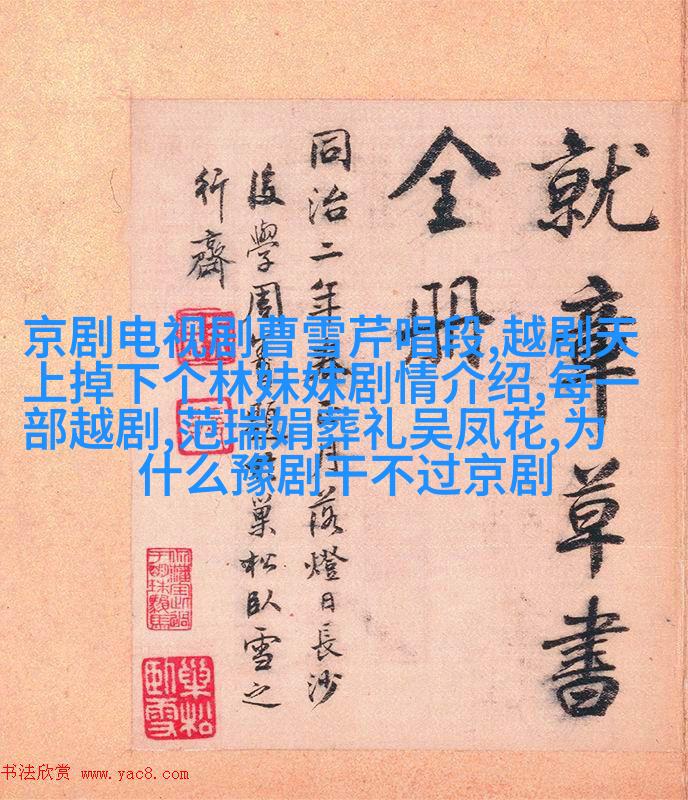 就章草書
全册
同治二年春月落燈日長沙
後學周題巢松臥雪之
行齋
京剧电视剧曹雪芹唱段,越剧天
上掉下个林妹妹剧情介绍,每一
部越剧,范瑞娟葬礼吴凤花,为
什么豫剧干不过京剧
巢松
臥雪
书法欣赏 www.yac8.com